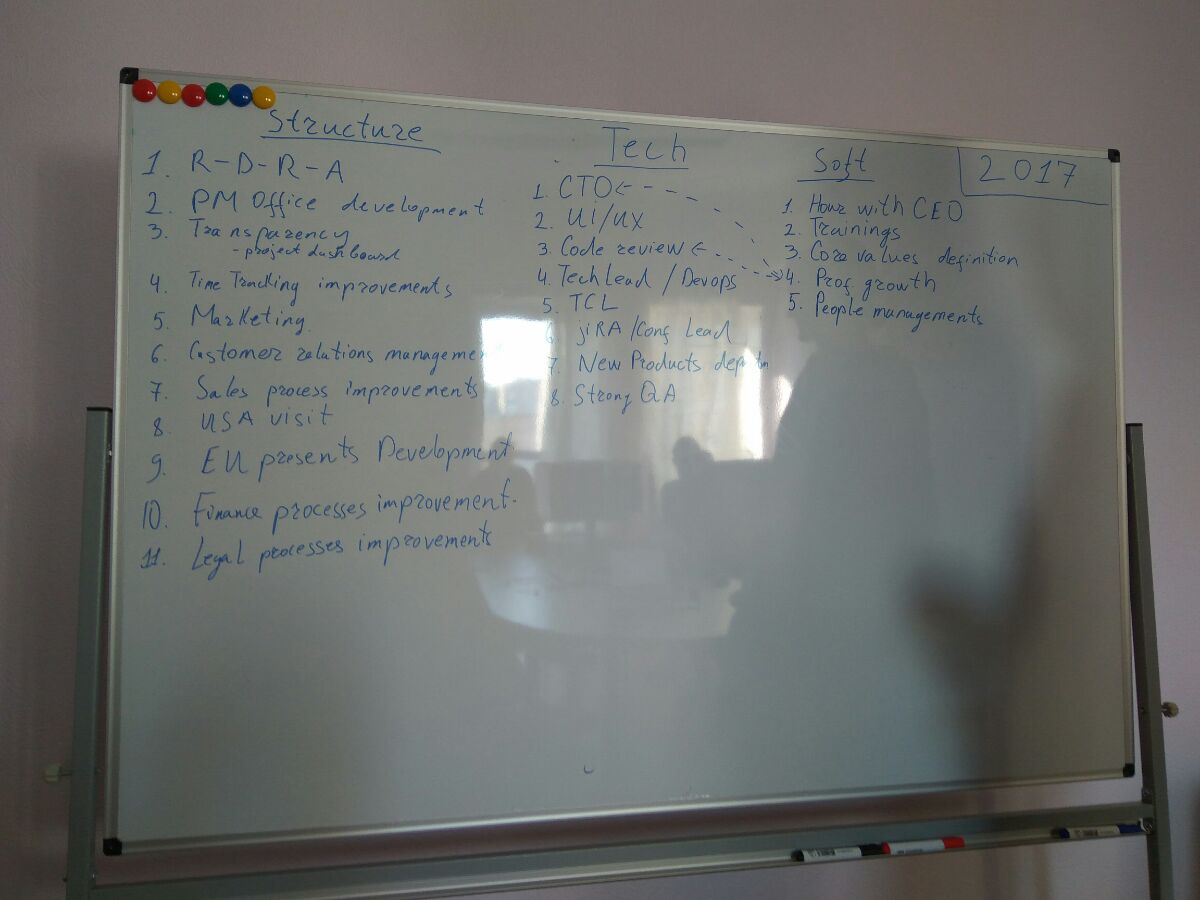 Structure
1. R-D-R-A
2. PM Office development
3. Transparency
- project dashboard
4. Time Tracking improvements
5. Marketing
6. Customer relations management
7. Sales process improvements
8. USA visit
9. EU presents Development
10. Finance processes improvement.
11. Legal processes improvements
Tech
1. CTO
2. Ui/ux
3. Code review
4. Tech Lead / Devops
5. TCL
6. jiRA/Conf Lead
7. New Products
8. Strong QA
Soft
1. Hour with CEO
2. Trainings
3. Core values definition
4. Prof growth
5. People managements
2017